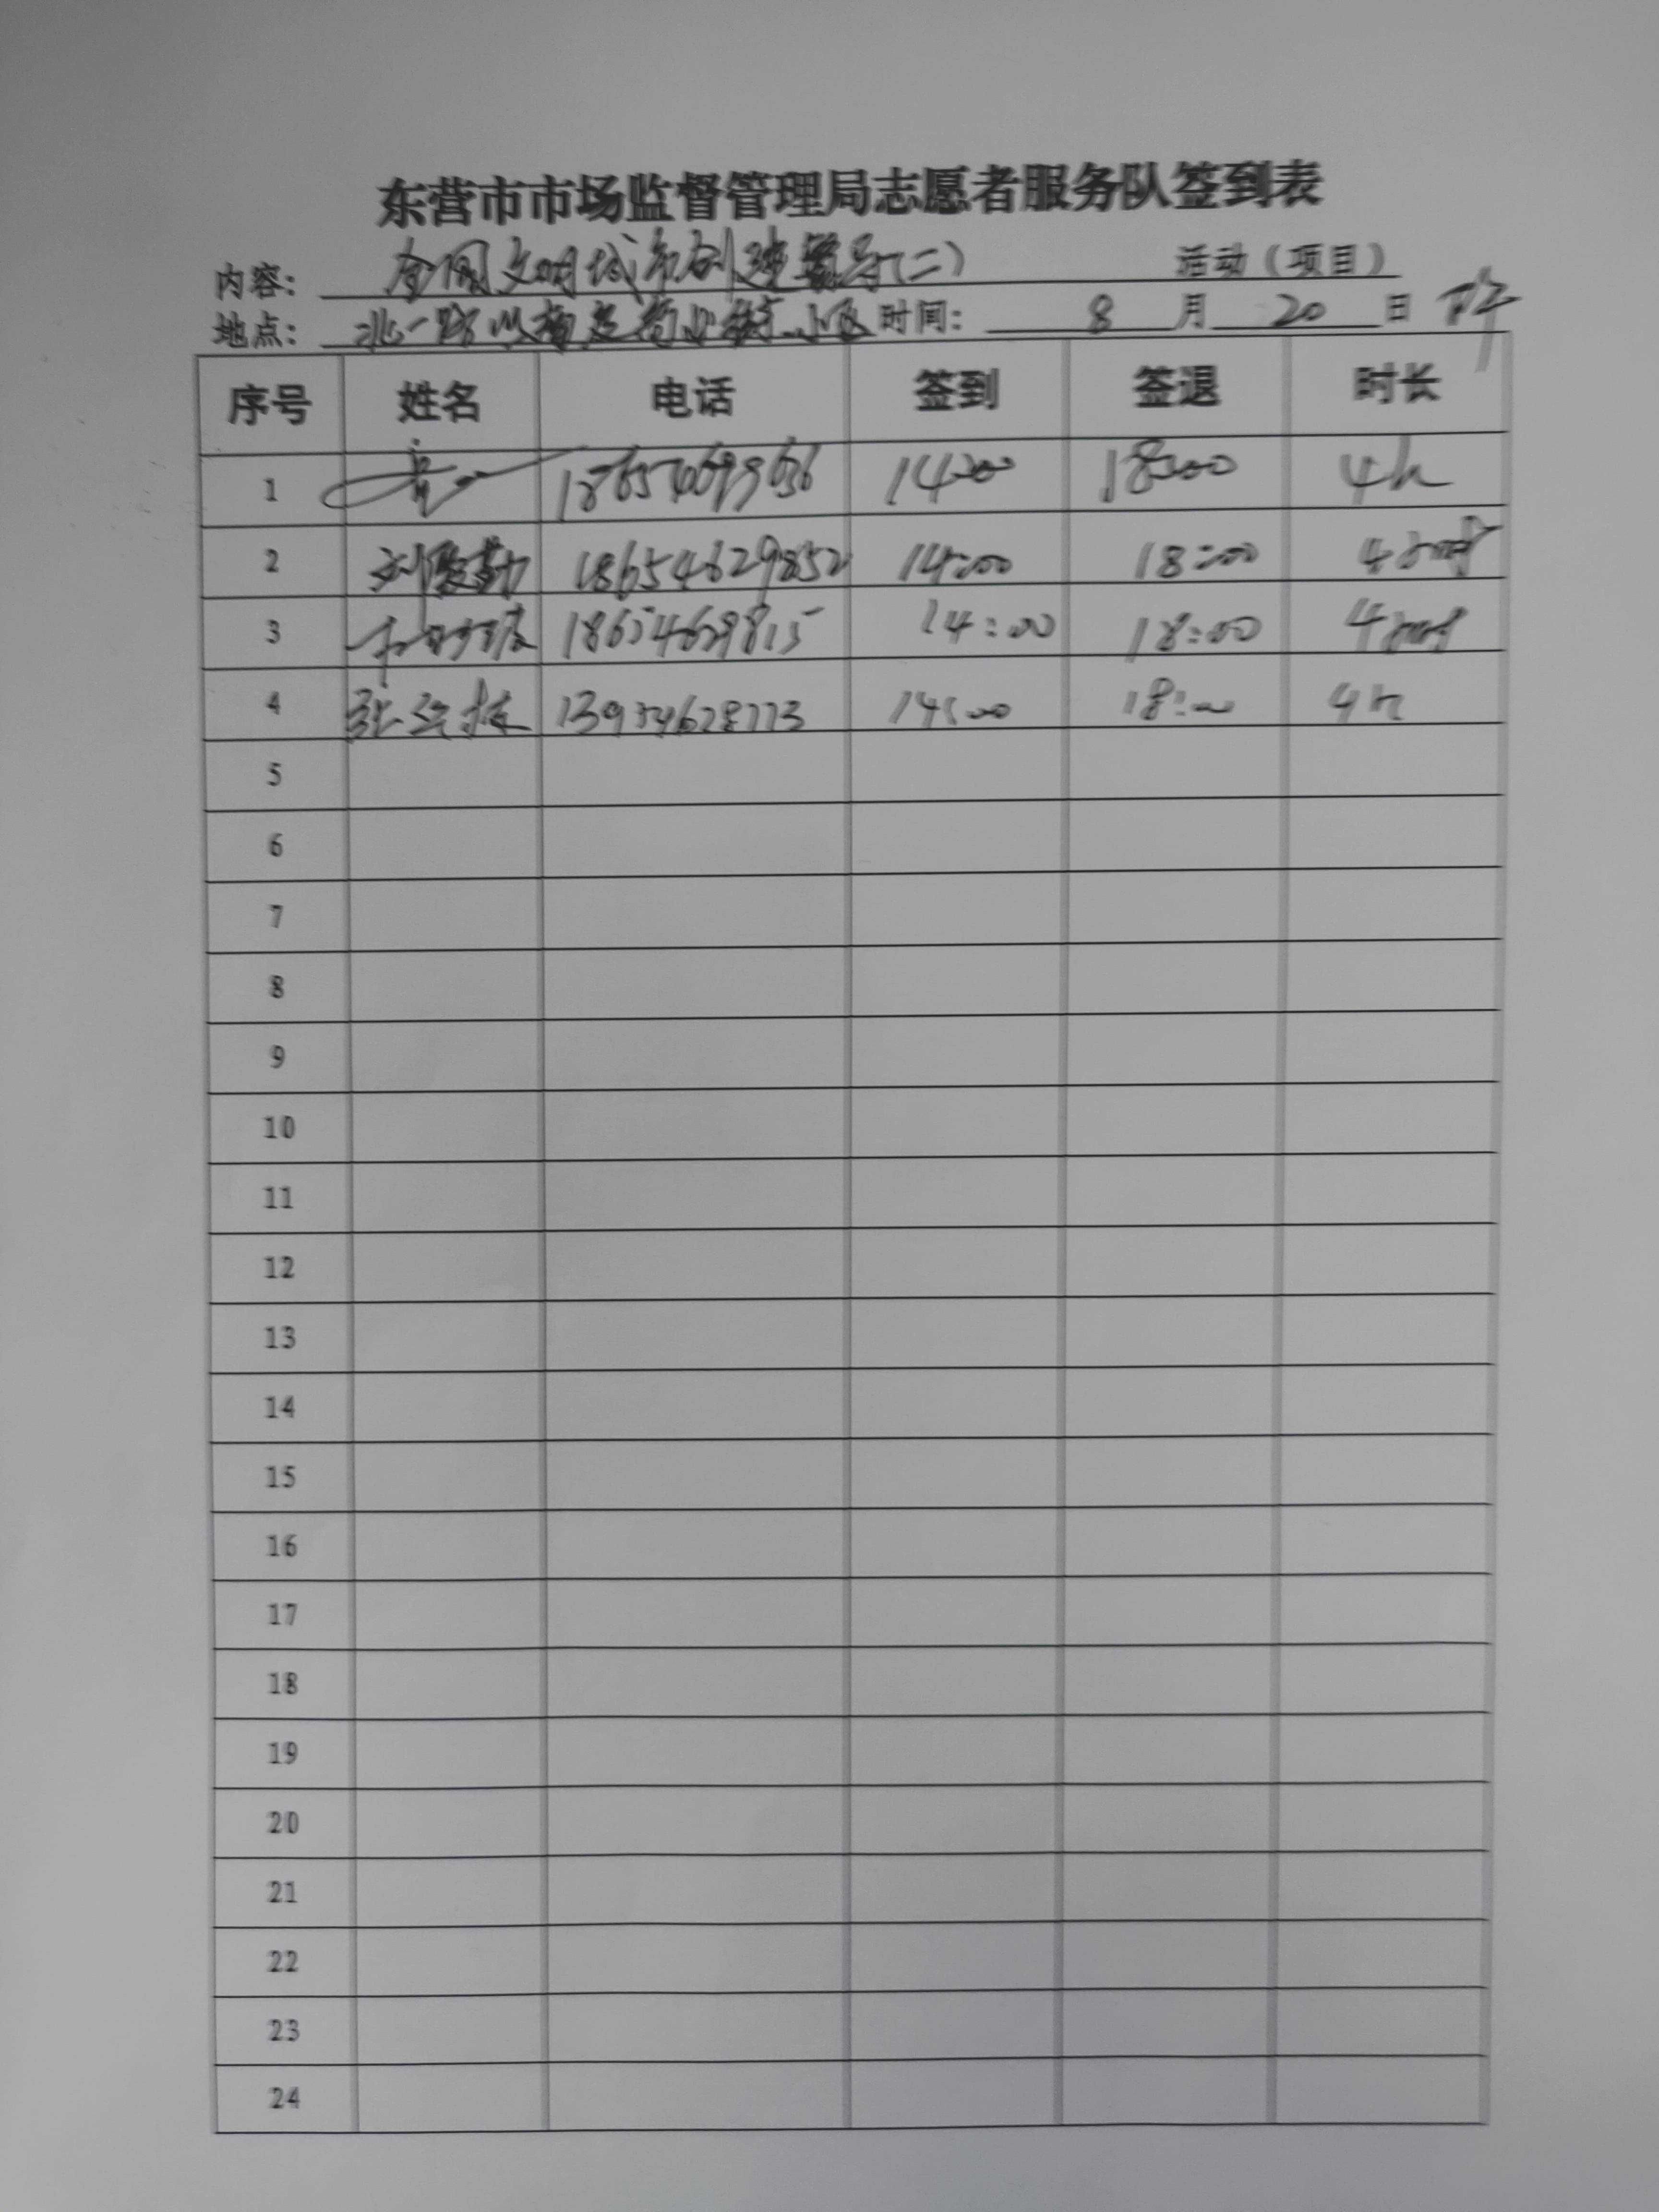 东营市市场监督管理局志愿者服务队签到表
内容： 全国文明城市创建督导(二) 活动（项目）
地点： 北一路以南 小区 时间： 8 月 20 日 下午
序号 姓名 电话 签到 签退 时长
1 14:00 18:00 4h
2 刘俊勤 18654629852 14:00 18:00 4小时
3 18654629815 14:00 18:00 4小时
4 张 14:00 18:00 4h
5
6
7
8
9
10
11
12
13
14
15
16
17
18
19
20
21
22
23
24